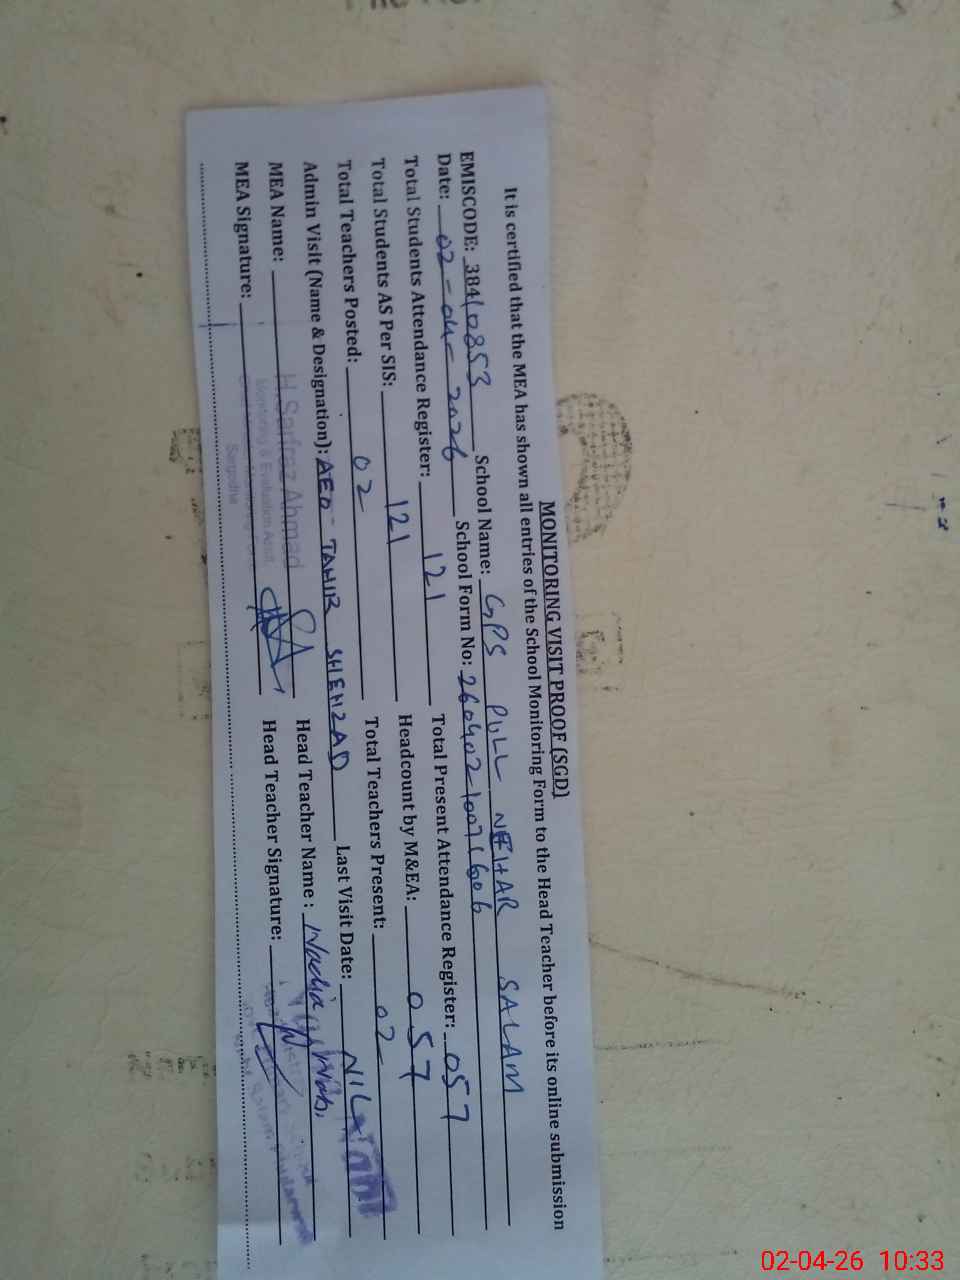 MONITORING VISIT PROOF (SGD)
It is certified that the MEA has shown all entries of the School Monitoring Form to the Head Teacher before its online submission
EMISCODE: 38410853 School Name: GPS PULL NEHAR SALAM
Date: 02-04-2026 School Form No: 26040210071606
Total Students Attendance Register: 121 Total Present Attendance Register: 057
Total Students AS Per SIS: 121 Headcount by M&EA: 057
Total Teachers Posted: 02 Total Teachers Present: 02
Admin Visit (Name & Designation): AEO - TAHIR SHEHZAD Last Visit Date: NIL
MEA Name: H.Sarfraz Ahmad Head Teacher Name : Nadia
Monitoring & Evaluation Assit.
MEA Signature: Head Teacher Signature:
Sargodha
02-04-26 10:33